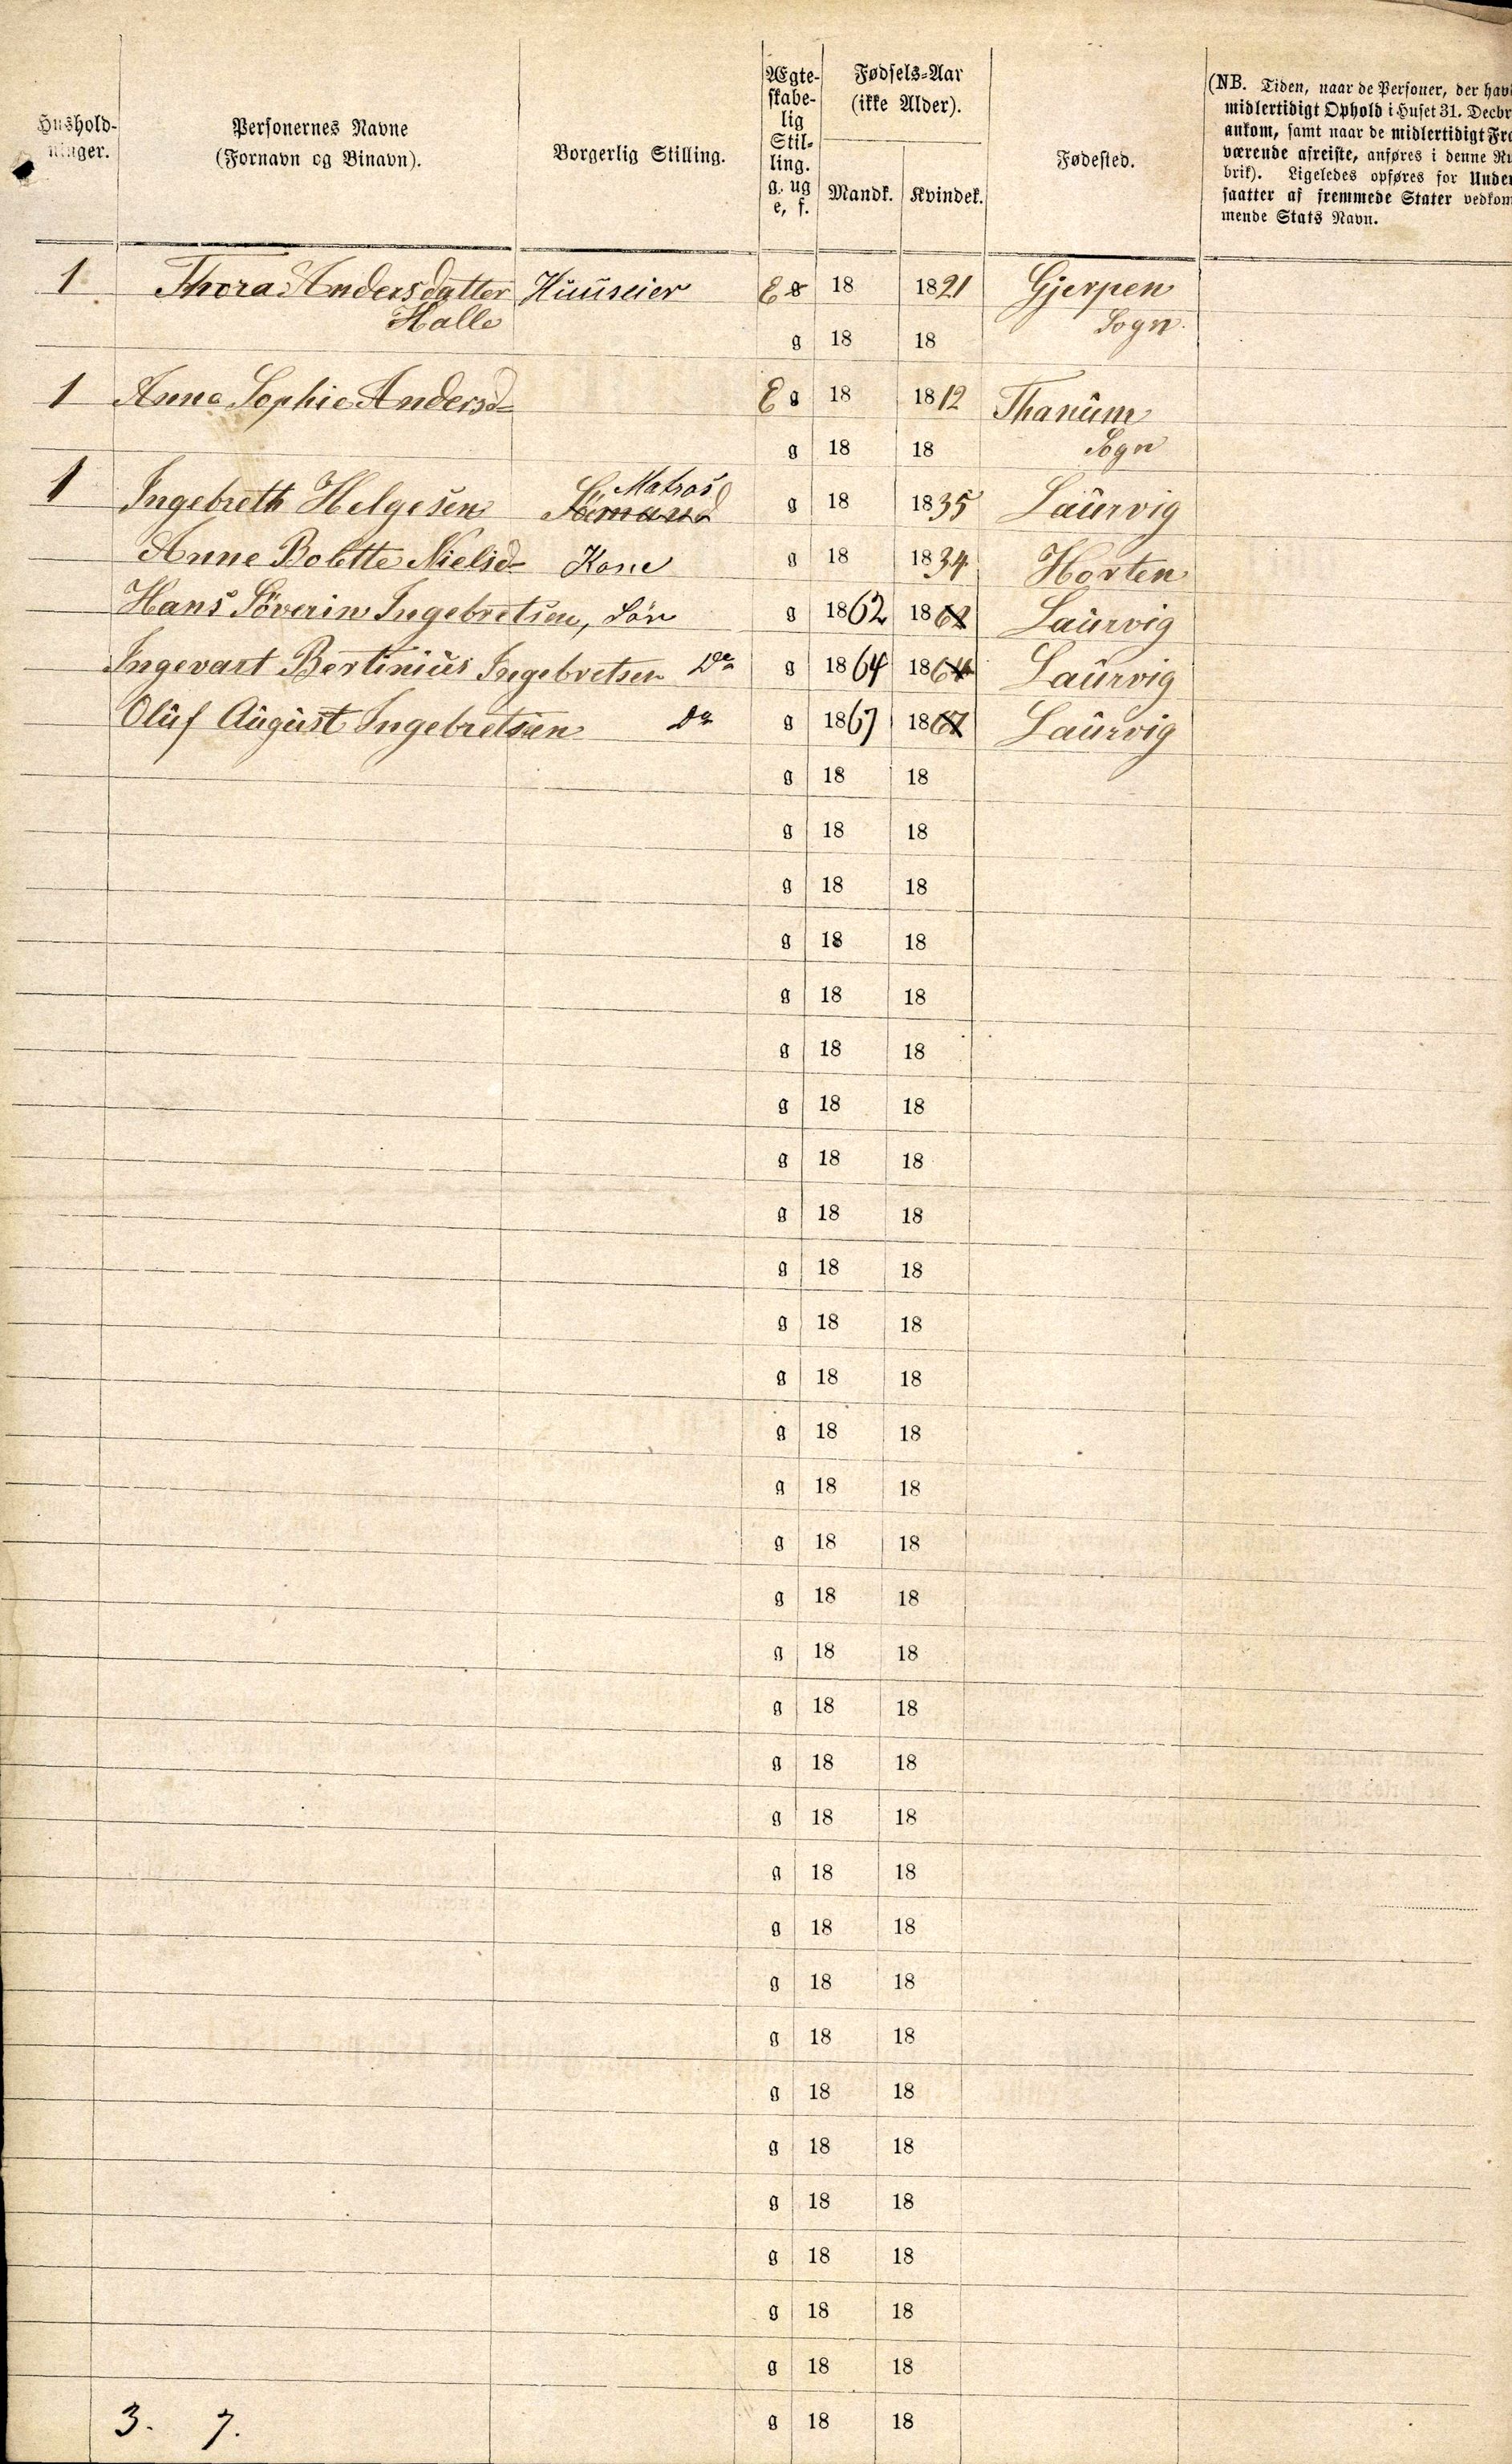 Hushold-
ninger.
Personernes Navne
(Fornavn og Binavn).
Borgerlig Stilling.
Ægte-
skabe-
lig
Stil-
ling.
g. ug
e, f.
Fødsels-Aar
(ikke Alder).
Mandk. Kvindek.
Fødested.
(NB. Tiden, naar de Personer, der hav
midlertidigt Ophold i Huset 31. Decbr
ankom, samt naar de midlertidigt Fra
værende afreiste, anføres i denne Ru
brik). Ligeledes opføres for Under
saatter af fremmede Stater vedkom
mende Stats Navn.
1 Thora Andersdatter Huuseier E g 18 1821 Gjerpen
Halle g 18 18 Sogn
1 Anne Sophie Andersd= E g 18 1812 Thanum
g 18 18 Sogn
Matros
1 Ingebreth Helgesen Sömand g 18 1835 Laurvig
Anne Bolette Nielsd= Kone g 18 1834 Horten
Hans Söverin Ingebretsen, Sön g 1862 1862 Laurvig
Ingevart Bertinius Ingebretsen Do g 1864 1864 Laurvig
Oluf August Ingebretsen do g 1867 1867 Laurvig
g 18 18
g 18 18
g 18 18
g 18 18
g 18 18
g 18 18
g 18 18
g 18 18
g 18 18
g 18 18
g 18 18
g 18 18
g 18 18
g 18 18
g 18 18
g 18 18
g 18 18
g 18 18
g 18 18
g 18 18
g 18 18
g 18 18
g 18 18
g 18 18
g 18 18
g 18 18
g 18 18
g 18 18
g 18 18
g 18 18
3. 7. g 18 18